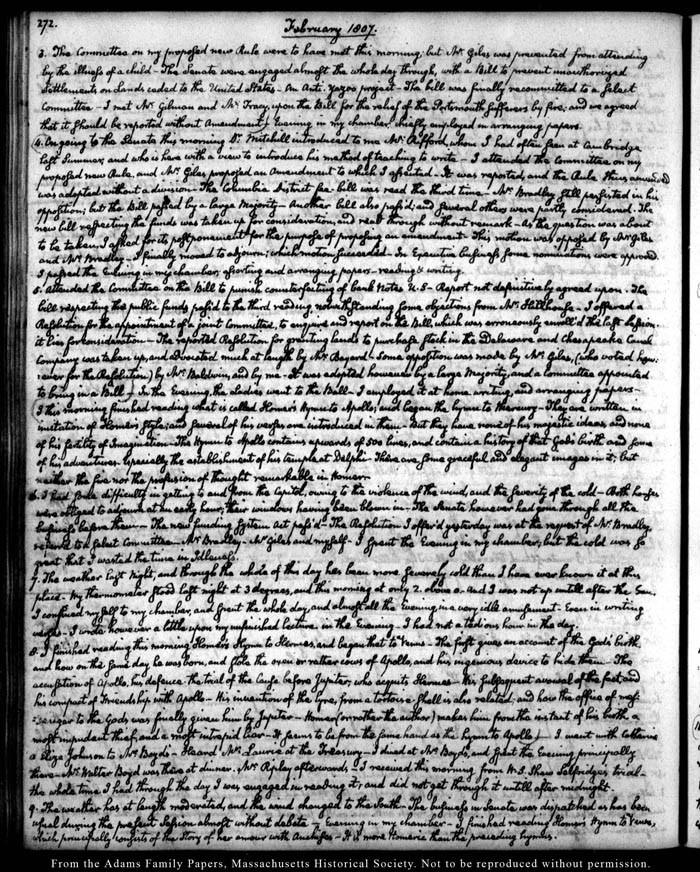 272.
February 1807.
3. The Committee on my proposed new Rule were to have met this morning; but Mr. Giles was prevented from attending
by the illness of a child – The Senate were engaged almost the whole day through, with a Bill to prevent unauthorized
settlements on Lands ceded to the United States – An Anti-Yazoo project – The bill was finally recommitted to a select
Committee – I met Mr. Gilman and Mr. Tracy, upon the Bill for the relief of the Portsmouth sufferers by fire; and we agreed
that it should be reported without Amendment – Evening in my chamber, chiefly employed in arranging papers.
4. On going to the Senate this morning Dr. Mitchill introduced to me Mr. Rifford, whom I had often seen at Cambridge
last Summer, and who is here with a view to introduce his method of teaching to write – I attended the Committee on my
proposed new Rule, and Mr. Giles proposed an Amendment to which I assented – It was reported, and the Rule thus amended
was adopted without a division – The Columbia District fee-bill was read the third time – Mr. Bradley still persisted in his
opposition; but the Bill passed by a large Majority – Another bill also pass'd; and several others were partly considered. The
new bill respecting the funds was taken up for consideration, and read through without remark – As the question was about
to be taken, I asked for its postponement for the purpose of proposing an amendment – This motion was opposed by Mr. Giles
and Mr. Bradley – I finally moved to adjourn; which motion succeeded – In Executive business some nominations were approved.
I passed the Evening in my chamber, assorting and arranging papers – reading & writing.
5. Attended the Committee on the Bill to punish counterfeiting of bank Notes U.S – Report not definitively agreed upon. The
bill respecting the public funds pass'd to the third reading, notwithstanding some objections from Mr. Hillhouse – I offered a
Resolution for the appointment of a joint Committee, to enquire and report on the Bill, which was erroneously enroll'd the last session.
it lies for consideration – The reported Resolution for granting lands to purchase stock in the Delaware and Chesapeake Canal
Company was taken up, and advocated much at length by Mr. Bayard – Some opposition was made by Mr. Giles, (who voted how-
ever for the Resolution) by Mr. Baldwin, and by me – It was adopted however by a large Majority, and a Committee appointed
to bring in a Bill – In the Evening, the Ladies went to the Ball – I employed it at home writing, and arranging papers –
I this morning finished reading what is called Homer's Hymn to Apollo; and began the hymn to Mercury – They are written in
imitation of Homer's Style; and several of his verses are introduced in them – But they have none of his majestic ideas, and none
of his fertility of Imagination – The Hymn to Apollo contains upwards of 500 lines, and contain a history of that God's birth and some
of his adventures. Especially the establishment of his temple at Delphi – There are some graceful and elegant images in it; but
neither the fire nor the profusion of thought remarkable in Homer.
6. I had some difficulty in getting to and from the Capitol, owing to the violence of the wind, and the severity of the cold – Both houses
were obliged to adjourn at an early hour; their windows having been blown in – The Senate however had gone through all the
business before them – The new funding System Act pass'd – The Resolution I offer'd yesterday was at the request of Mr. Bradley
referr'd to a select Committee – Mr. Bradley – Mr. Giles and myself – I spent the Evening in my chamber; but the cold was so
great that I wasted the time in Idleness.
7. The weather last Night, and through the whole of this day has been more severely cold than I have ever known it at this
place – My thermometer stood last night at 3 degrees, and this morning at only 2. above 0. And I was not up untill after the Sun.
I confined myself to my chamber, and spent the whole day, and almost all the Evening, in a very idle amusement – Even in writing
verses – I wrote however a little upon my unfinished lecture in the Evening – I had not a tedious hour in the day.
8. I finished reading this morning Homer's Hymn to Hermes, and began that to Venus – The first gives an account of the God's birth
and how on the same day he was born, and stole the oxen or rather cows of Apollo, and his ingenious device to hide them – The
accusation of Apollo, his defence, the trial of the Cause before Jupiter, who acquits Hermes – His subsequent avowal of the fact, and
his compact of Friendship with Apollo – His invention of the lyre, from a tortoise-shell is also related; and how the office of mes-
senger to the Gods was finally given him by Jupiter – Homer (or rather the author) makes him from the instant of his birth, a
most impudent thief, and a most intrepid liar – It seems to be from the same hand as the Hymn to Apollo – I went with Catherine
& Eliza Johnson to Mr. Boyd's – Heard Mr. Laurie at the Treasury – I dined at Mr. Boyd's, and spent the Evening principally
there – Mr. Walter Boyd was there at dinner. Mr. Ripley afterwards – I received this morning from W. S. Shaw Selfridge's trial –
the whole time I had through the day I was engaged in reading it; and did not get through it untill after midnight.
9. The weather has at length moderated, and the wind changed to the South – The business in Senate was dispatched as has been
usual during the present Session almost without debate – Evening in my chamber – I finished reading Homer's Hymn to Venus,
which principally consists of the Story of her amour with Anchises – It is more Homeric than the preceding hymns.
From the Adams Family Papers, Massachusetts Historical Society. Not to be reproduced without permission.